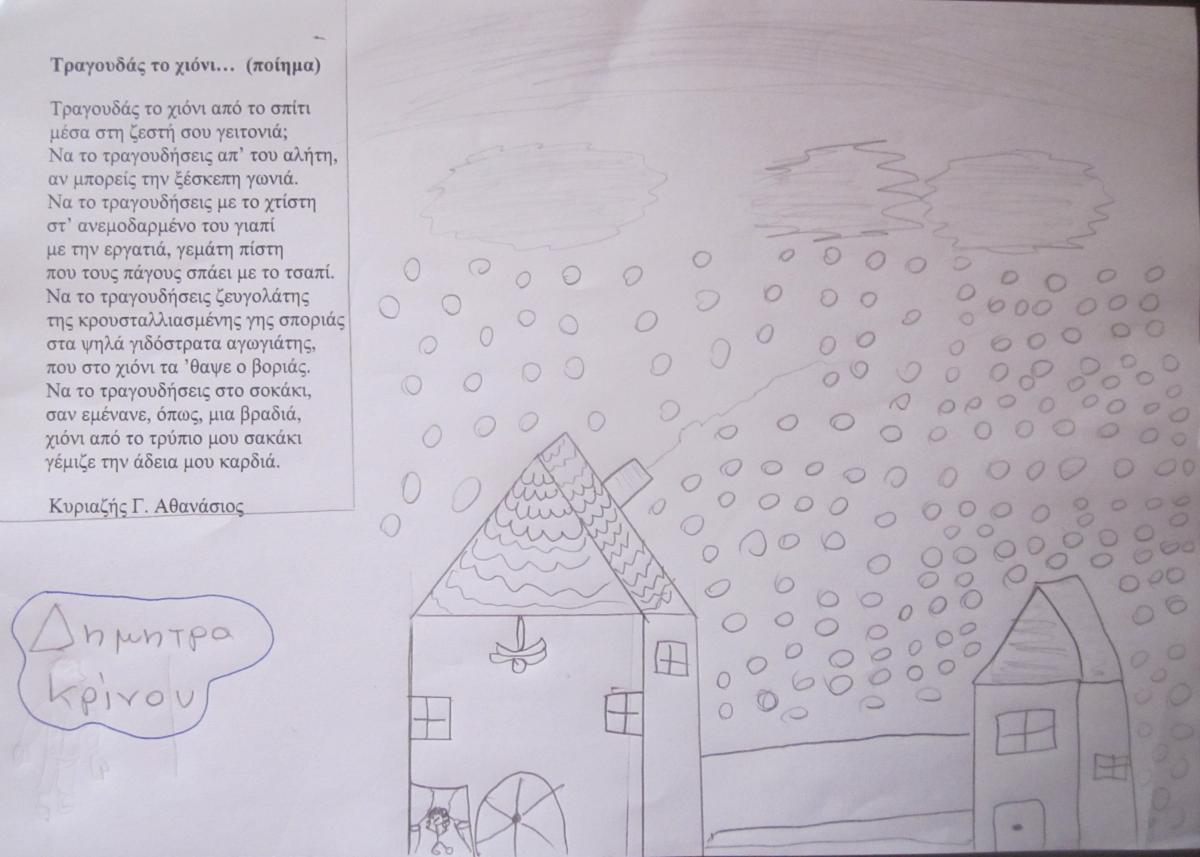 Τραγουδάς το χιόνι… (ποίημα)
Τραγουδάς το χιόνι από το σπίτι
μέσα στη ζεστή σου γειτονιά;
Να το τραγουδήσεις απ’ του αλήτη,
αν μπορείς την ξέσκεπη γωνιά.
Να το τραγουδήσεις με το χτίστη
στ’ ανεμοδαρμένο του γιαπί
με την εργατιά, γεμάτη πίστη
που τους πάγους σπάει με το τσαπί.
Να το τραγουδήσεις ζευγολάτης
της κρουσταλλιασμένης γης σποριάς
στα ψηλά γιδόστρατα αγωγιάτης,
που στο χιόνι τα ’θαψε ο βοριάς.
Να το τραγουδήσεις στο σοκάκι,
σαν εμένανε, όπως, μια βραδιά,
χιόνι από το τρύπιο μου σακάκι
γέμιζε την άδεια μου καρδιά.
Κυριαζής Γ. Αθανάσιος
Δημητρα
Κρίνου